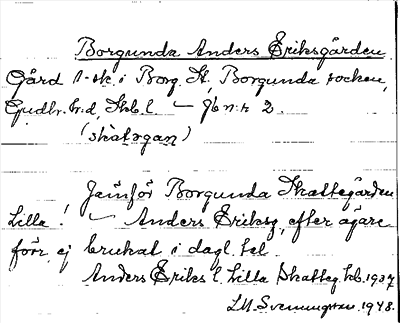 Borgunda Anders Eriksgården
Gård i Borg. St, Borgunda socken,
Gudh. hd, Skb. l. – Jb n:r 2.
(skategan)
Jämför Borgunda Skattegården
Lilla! – Anders Eriksg. efter ägare
förr, ej brukat i dagl. tal.
Anders Eriks l. Lilla Skatteg. kb. 1937
1948.